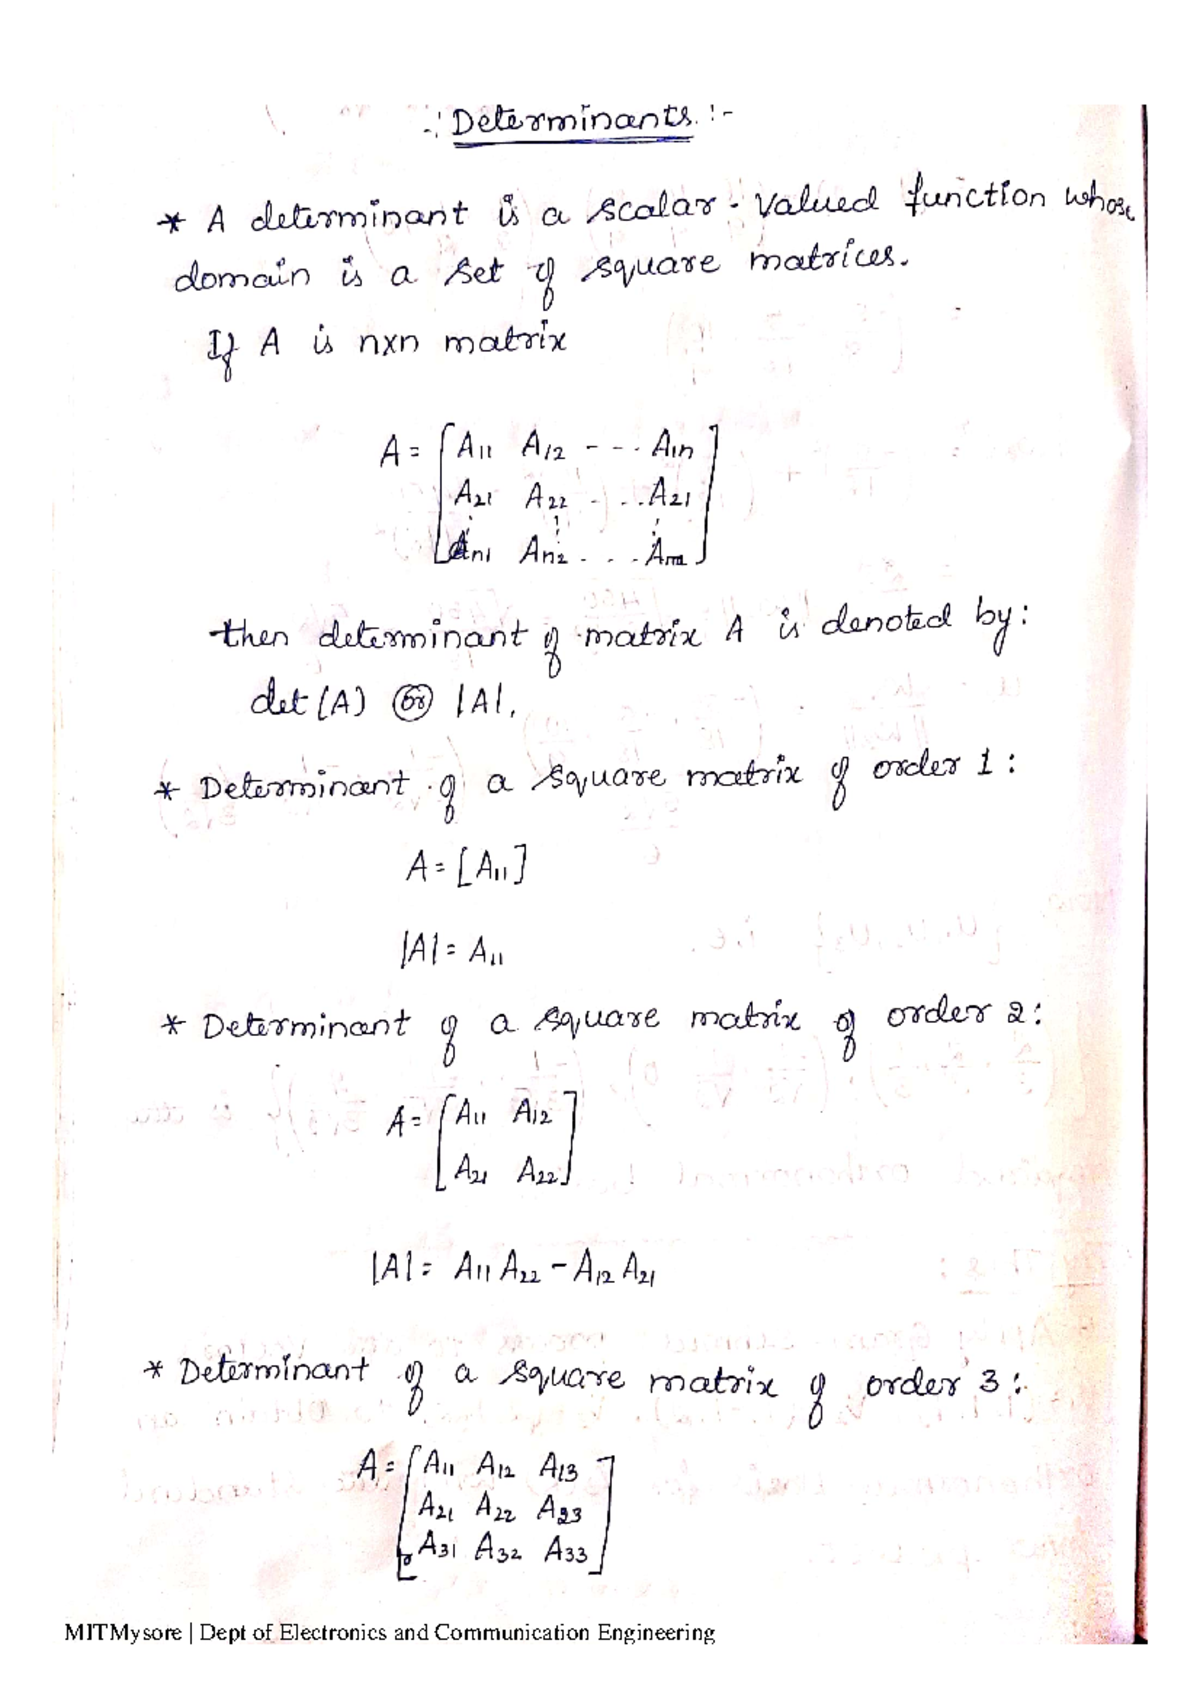 :Determinants:-
* A determinant is a scalar-valued function whose
domain is a set of square matrices.
If A is nxn matrix
A = [A11 A12 - - . A1n
A21 A22 - . . A21
An1 An2 . . . Ann]
then determinant of matrix A is denoted by:
det (A) or |A|.
* Determinant of a square matrix of order 1:
A = [A11]
|A| = A11
* Determinant of a square matrix of order 2:
A = [A11 A12
A21 A22]
|A| = A11 A22 - A12 A21
* Determinant of a square matrix of order 3:
A = [A11 A12 A13
A21 A22 A23
A31 A32 A33]
MITMysore | Dept of Electronics and Communication Engineering